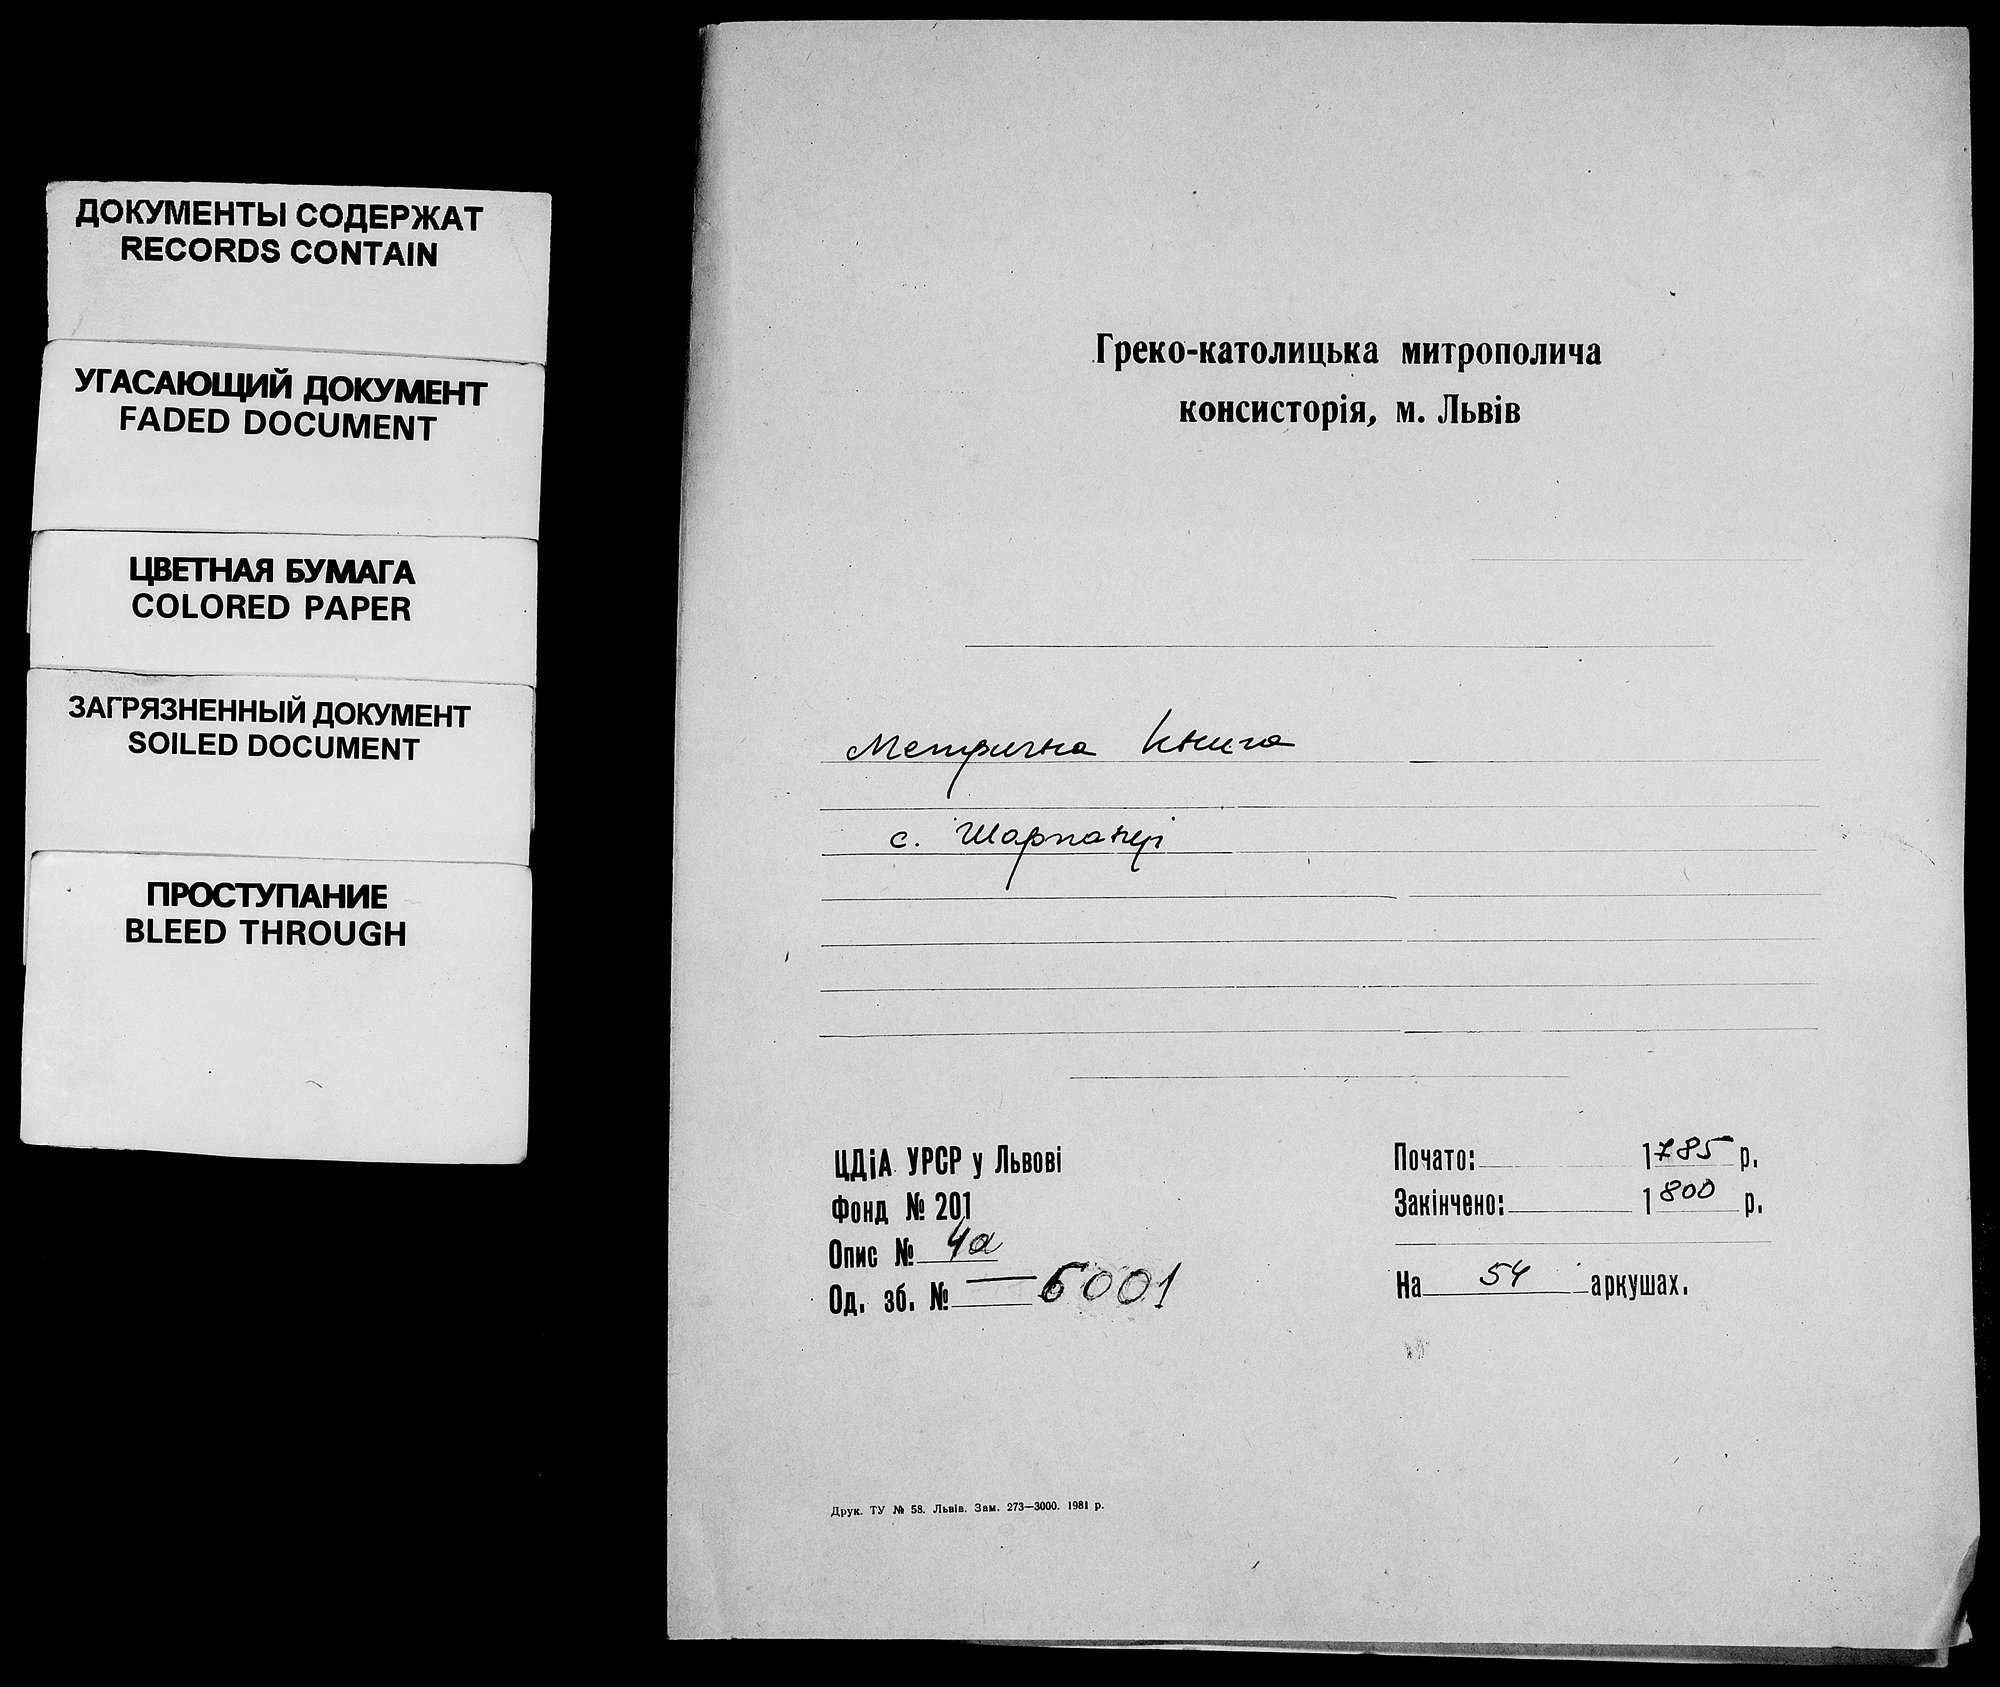 ДОКУМЕНТЫ СОДЕРЖАТ
RECORDS CONTAIN
УГАСАЮЩИЙ ДОКУМЕНТ
FADED DOCUMENT
ЦВЕТНАЯ БУМАГА
COLORED PAPER
ЗАГРЯЗНЕННЫЙ ДОКУМЕНТ
SOILED DOCUMENT
ПРОСТУПАНИЕ
BLEED THROUGH
Греко-католицька митрополича
консисторія, м. Львів
Метрична книга
с. Шарпанці
ЦДіА УРСР у Львові
Фонд № 201
Опис № 4а
Од. зб. № 6001
Почато: 1785 р.
Закінчено: 1800 р.
На 54 аркушах.
Друк. ТУ № 58. Львів. Зам. 273—3000. 1981 р.